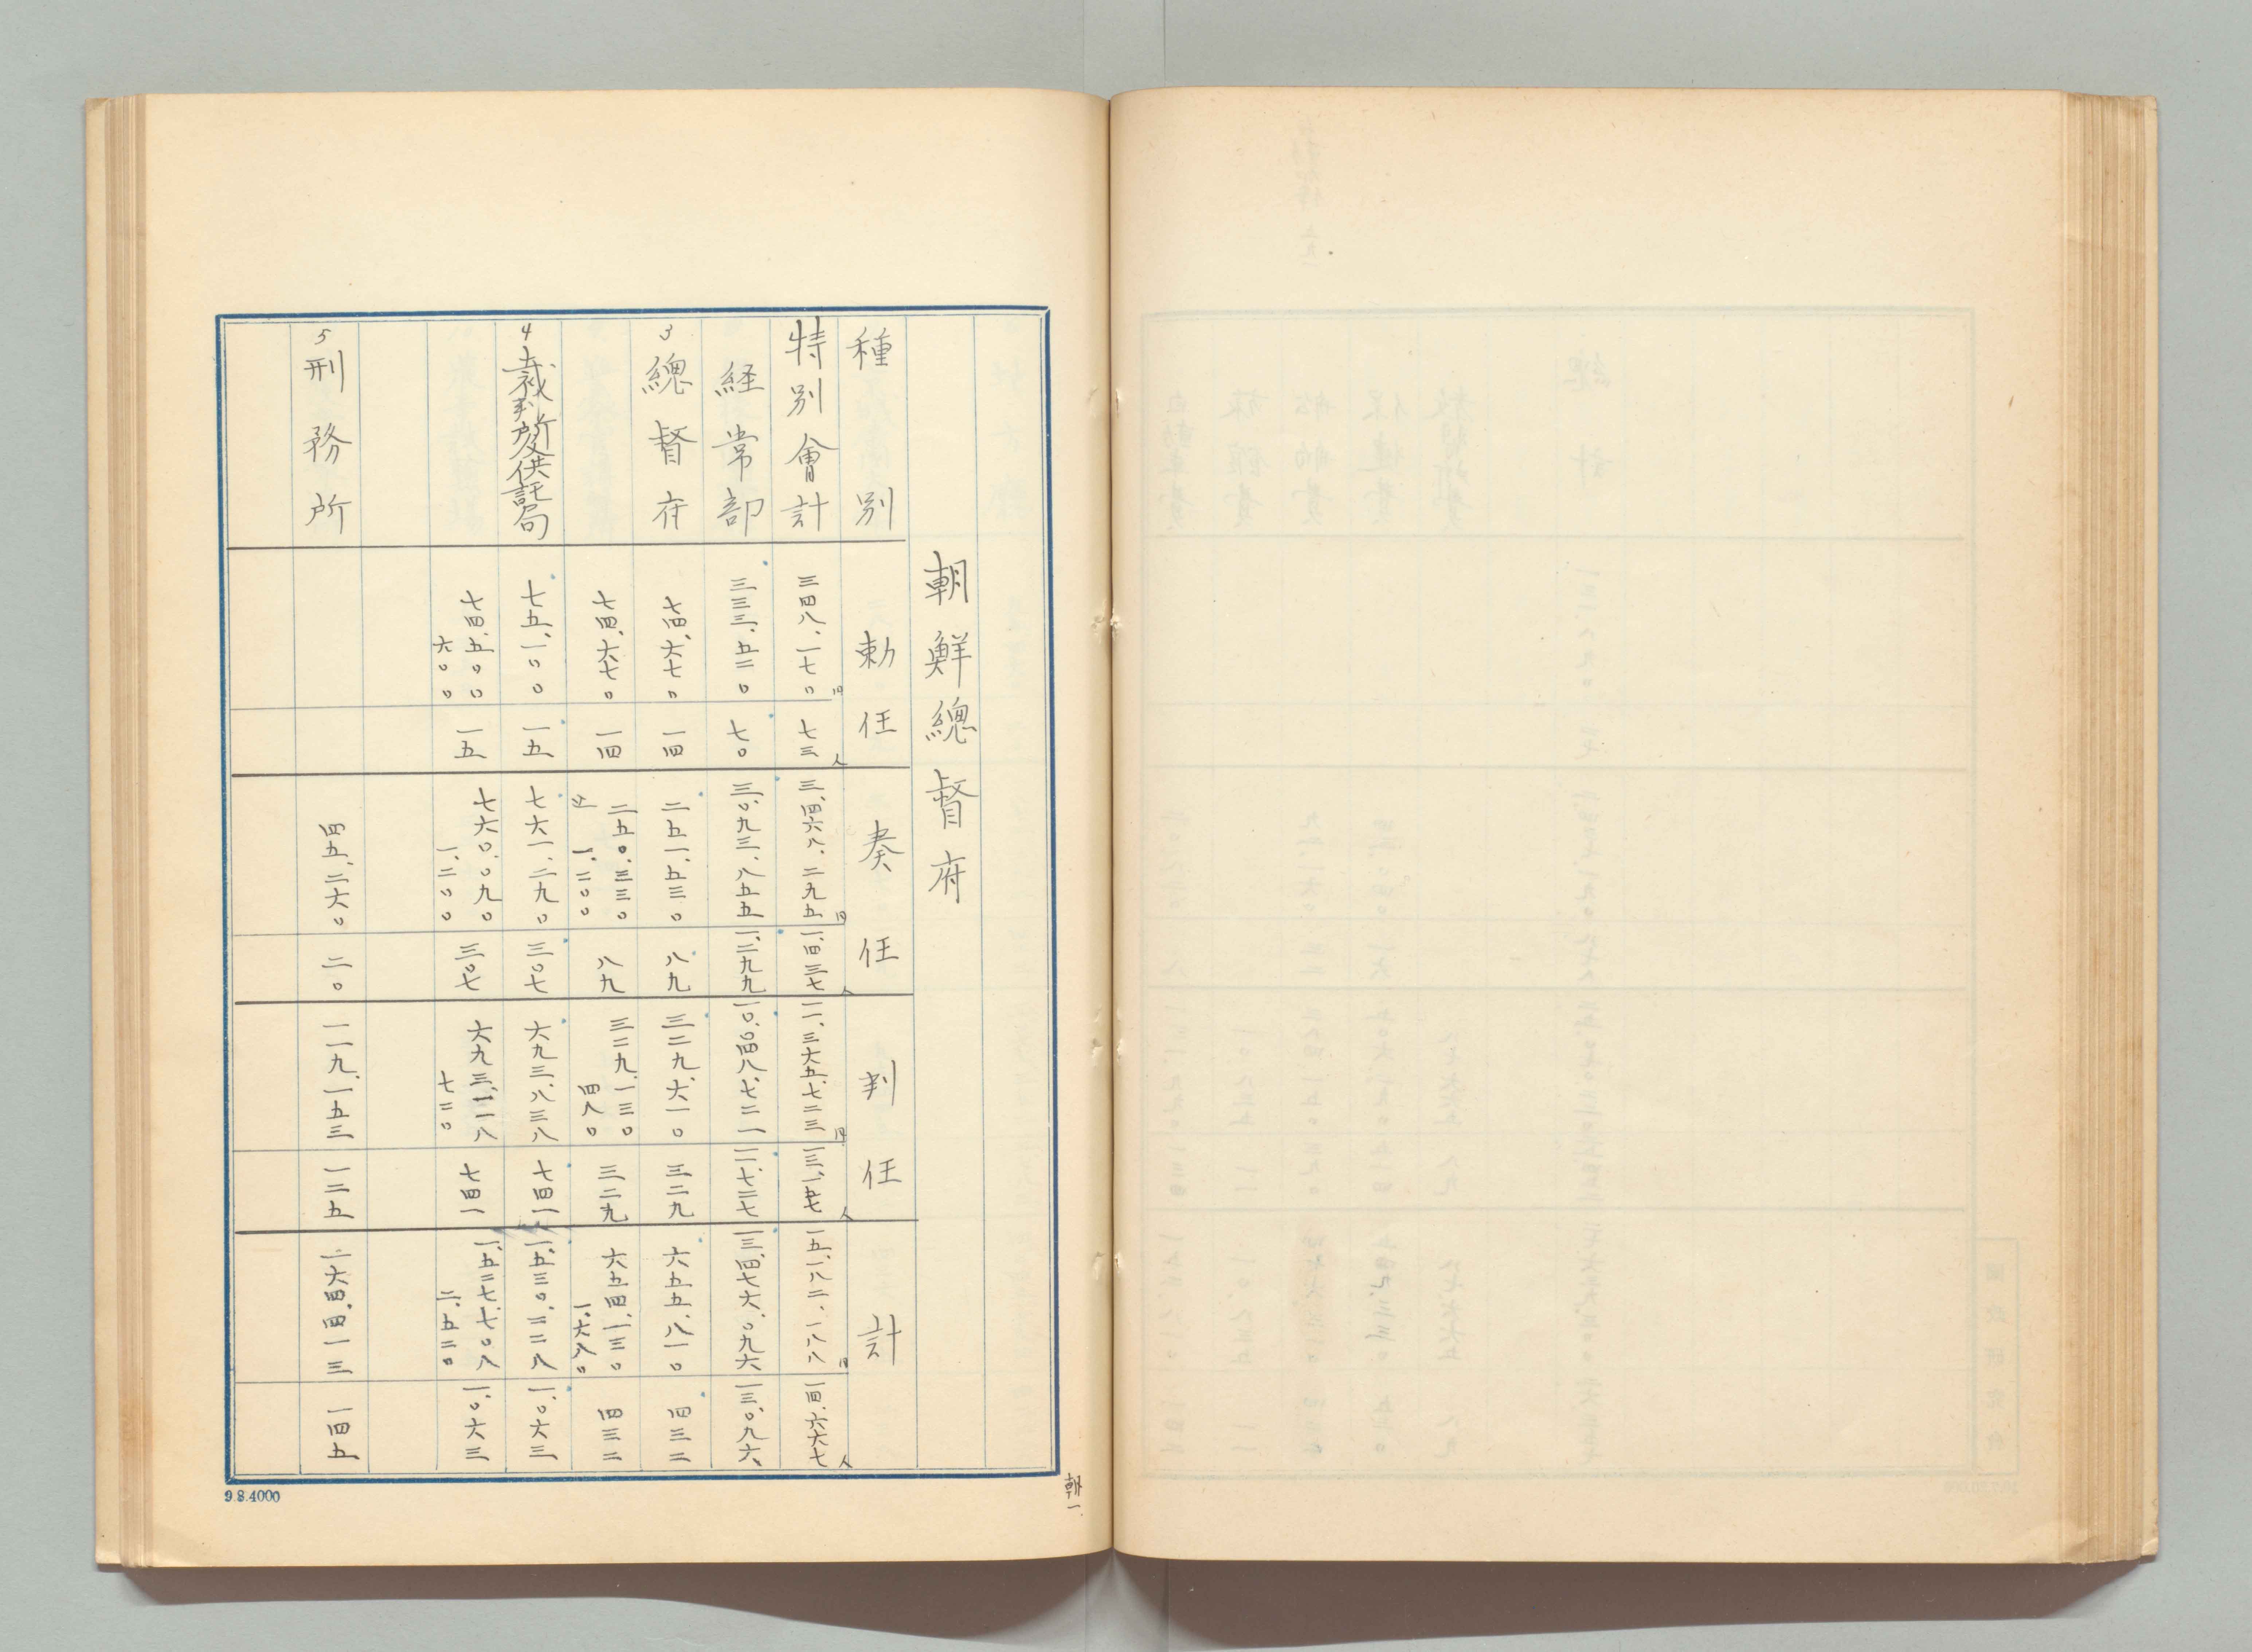 朝鮮總督府
種別 勅任 奏任 判任 計
特別會計 三四八、一七〇円 七三人 三、四六八、二九五円 一、四三七人 一一、三六五、七二三円 一三、一五七人 一五、一八二、一八八円 一四、六六七人
経常部 三三三、五二〇 七〇 三、〇九三、八五五 一、二九九 一〇、〇四八、七二一 一一、七二七 一三、四七六、〇九六 一三、〇九六
3 總督府 七四、六七〇 一四 二五一、五三〇 八九 三二九、六一〇 三二九 六五五、八一〇 四三二
七四、六七〇 一四 二五〇、三三〇 八九 三二九、一三〇 三二九 六五四、一三〇 四三二
一、二〇〇 四八〇 一、六八〇
4 裁判所及供託局 七五、一〇〇 一五 七六一、二九〇 三〇七 六九三、八三八 七四一 一、五三〇、二二八 一、〇六三
七四、五〇〇 一五 七六〇、〇九〇 三〇七 六九三、一一八 七四一 一、五二七、七〇八 一、〇六三
六〇〇 一、二〇〇 七二〇 二、五二〇
5 刑務所 四五、二六〇 二〇 一一九、一五三 一二五 一六四、四一三 一四五
朝一
9.8.4000